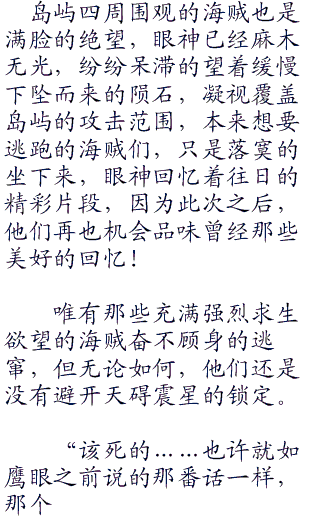 岛屿四周围观的海贼也是
满脸的绝望，眼神已经麻木
无光，纷纷呆滞的望着缓慢
下坠而来的陨石，凝视覆盖
岛屿的攻击范围，本来想要
逃跑的海贼们，只是落寞的
坐下来，眼神回忆着往日的
精彩片段，因为此次之后，
他们再也机会品味曾经那些
美好的回忆！
唯有那些充满强烈求生
欲望的海贼奋不顾身的逃
窜，但无论如何，他们还是
没有避开天碍震星的锁定。
“该死的……也许就如
鹰眼之前说的那番话一样，
那个